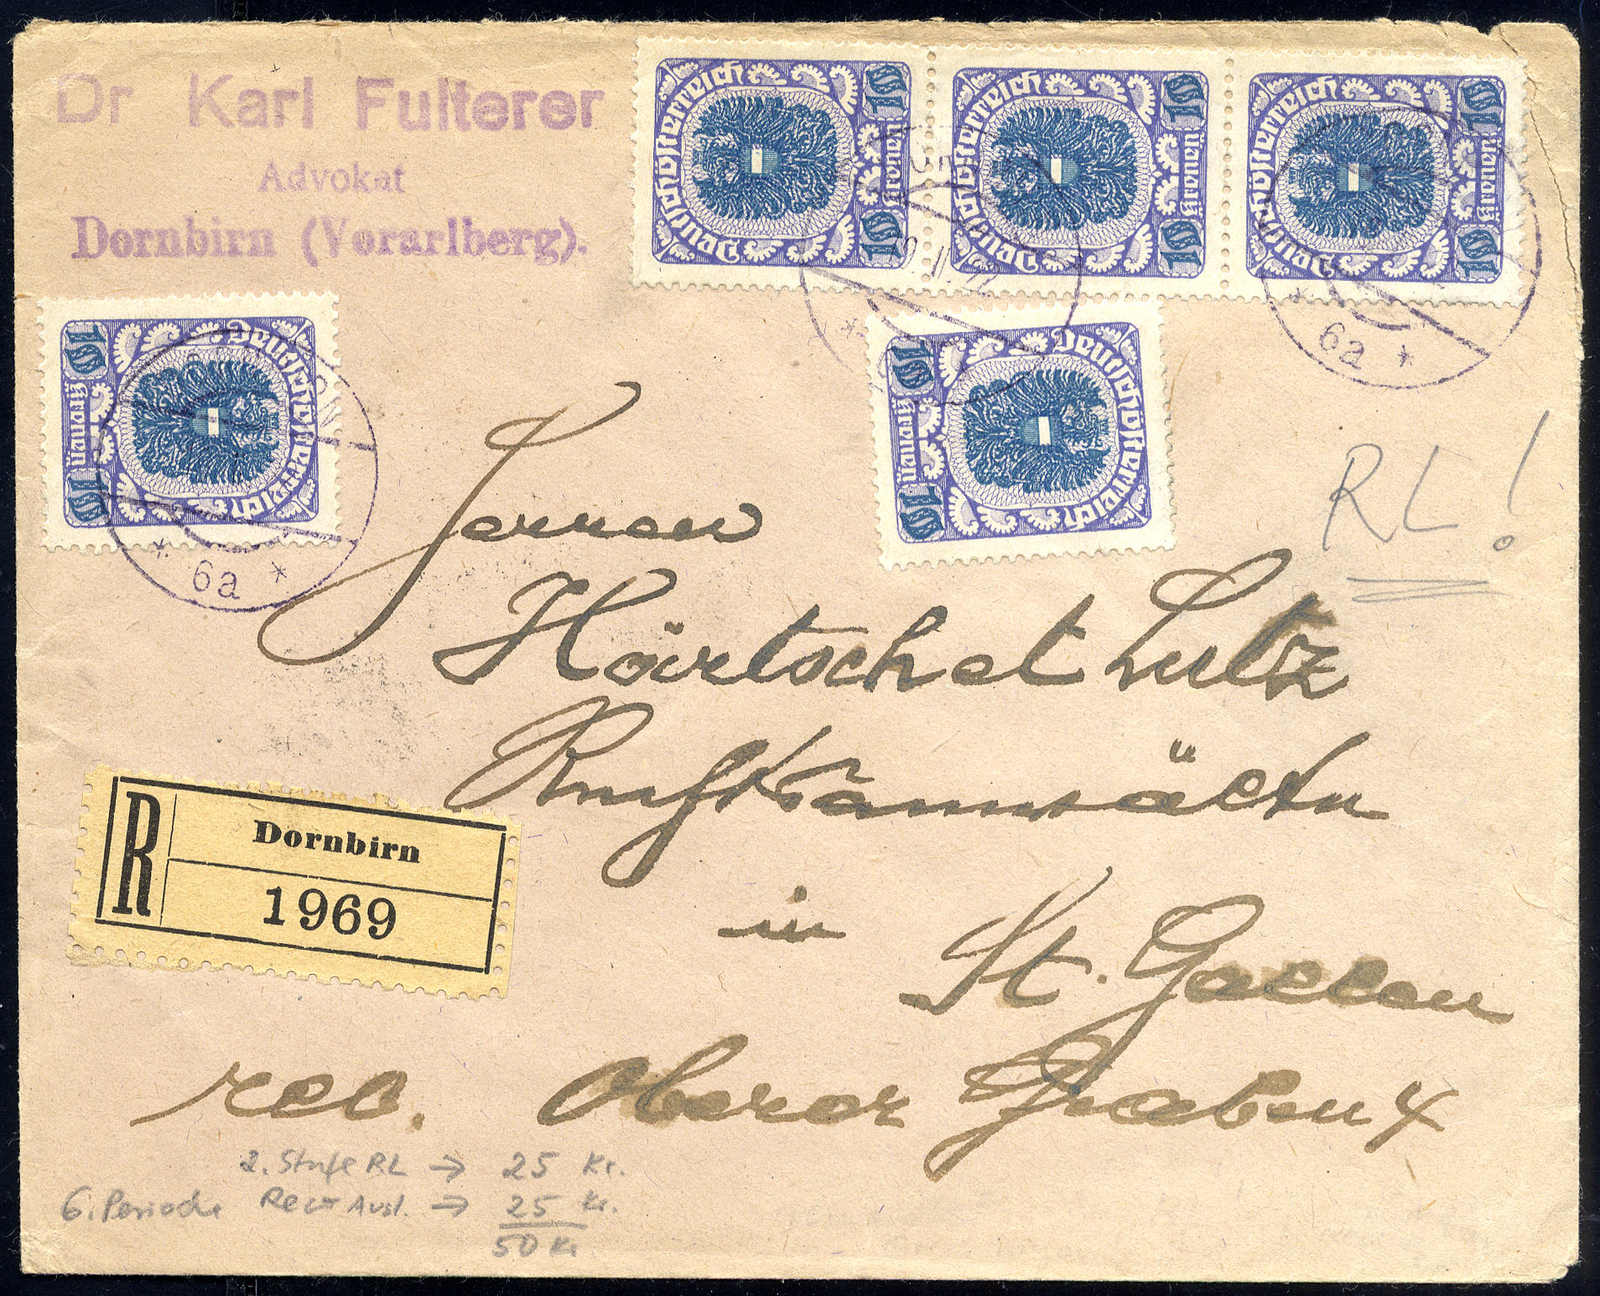 Dr Karl Fulterer
Advokat
Dornbirn (Vorarlberg).
Deutschösterreich
10 Kronen 10
Deutschösterreich
10 Kronen 10
Deutschösterreich
10 Kronen 10
Deutschösterreich
10 Kronen 10
Deutschösterreich
10 Kronen 10
* 6a *
* 6a *
RL!
Herren
Hörtsch et Lutz
Rechtsanwälte
in
St. Gallen
rec. Oberer Graben 4
R
Dornbirn
1969
2. Stufe RL → 25 Kr.
6. Periode Reco Ausl. → 25 Kr.
50 Kr